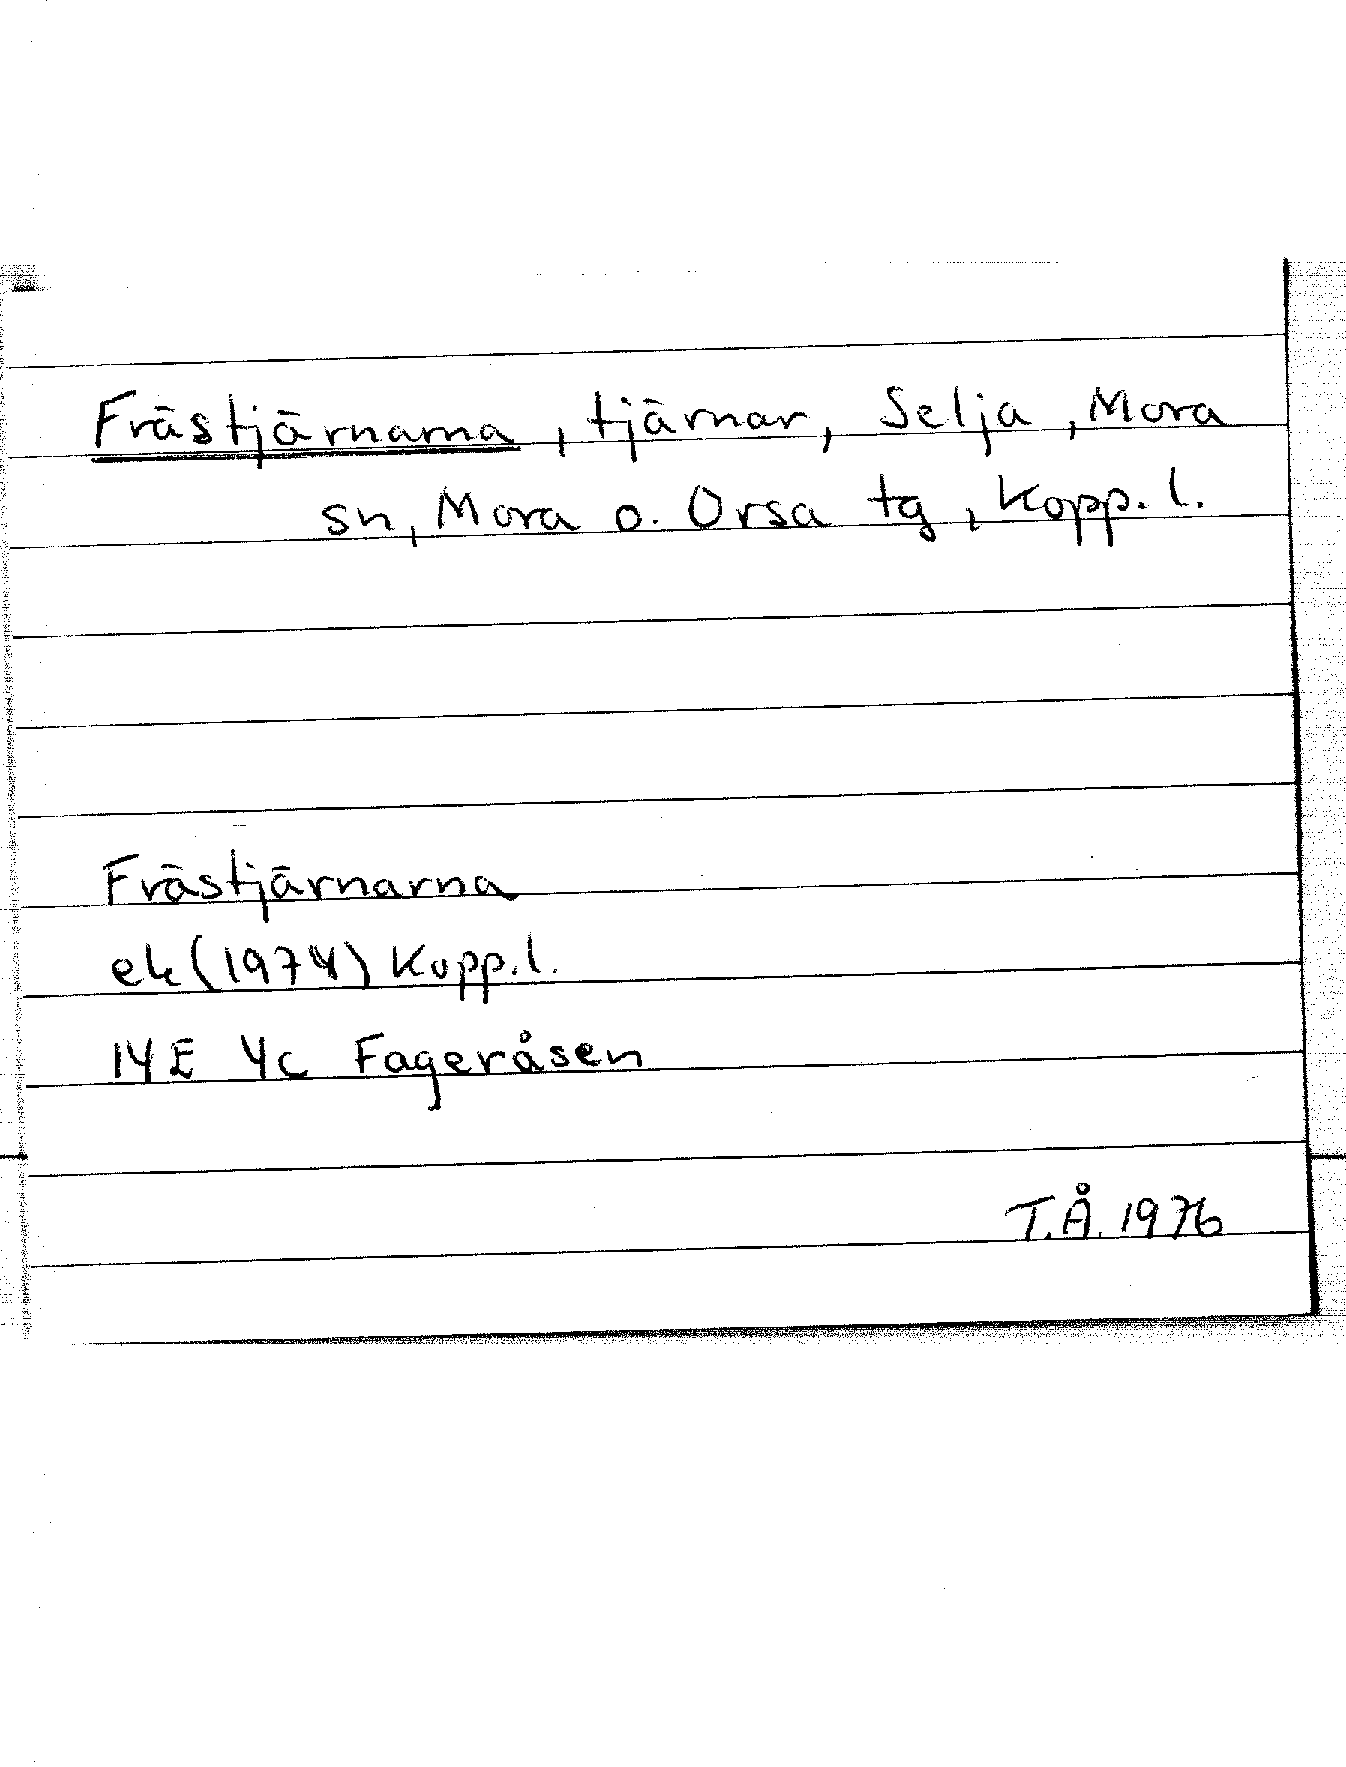 Frästjärnarna, tjärnar, Selja, Mora
sn, Mora o. Orsa tg, Kopp. l.
Frästjärnarna
ek (1974) Kopp. l.
14E 4c Fageråsen
T.Å. 1976